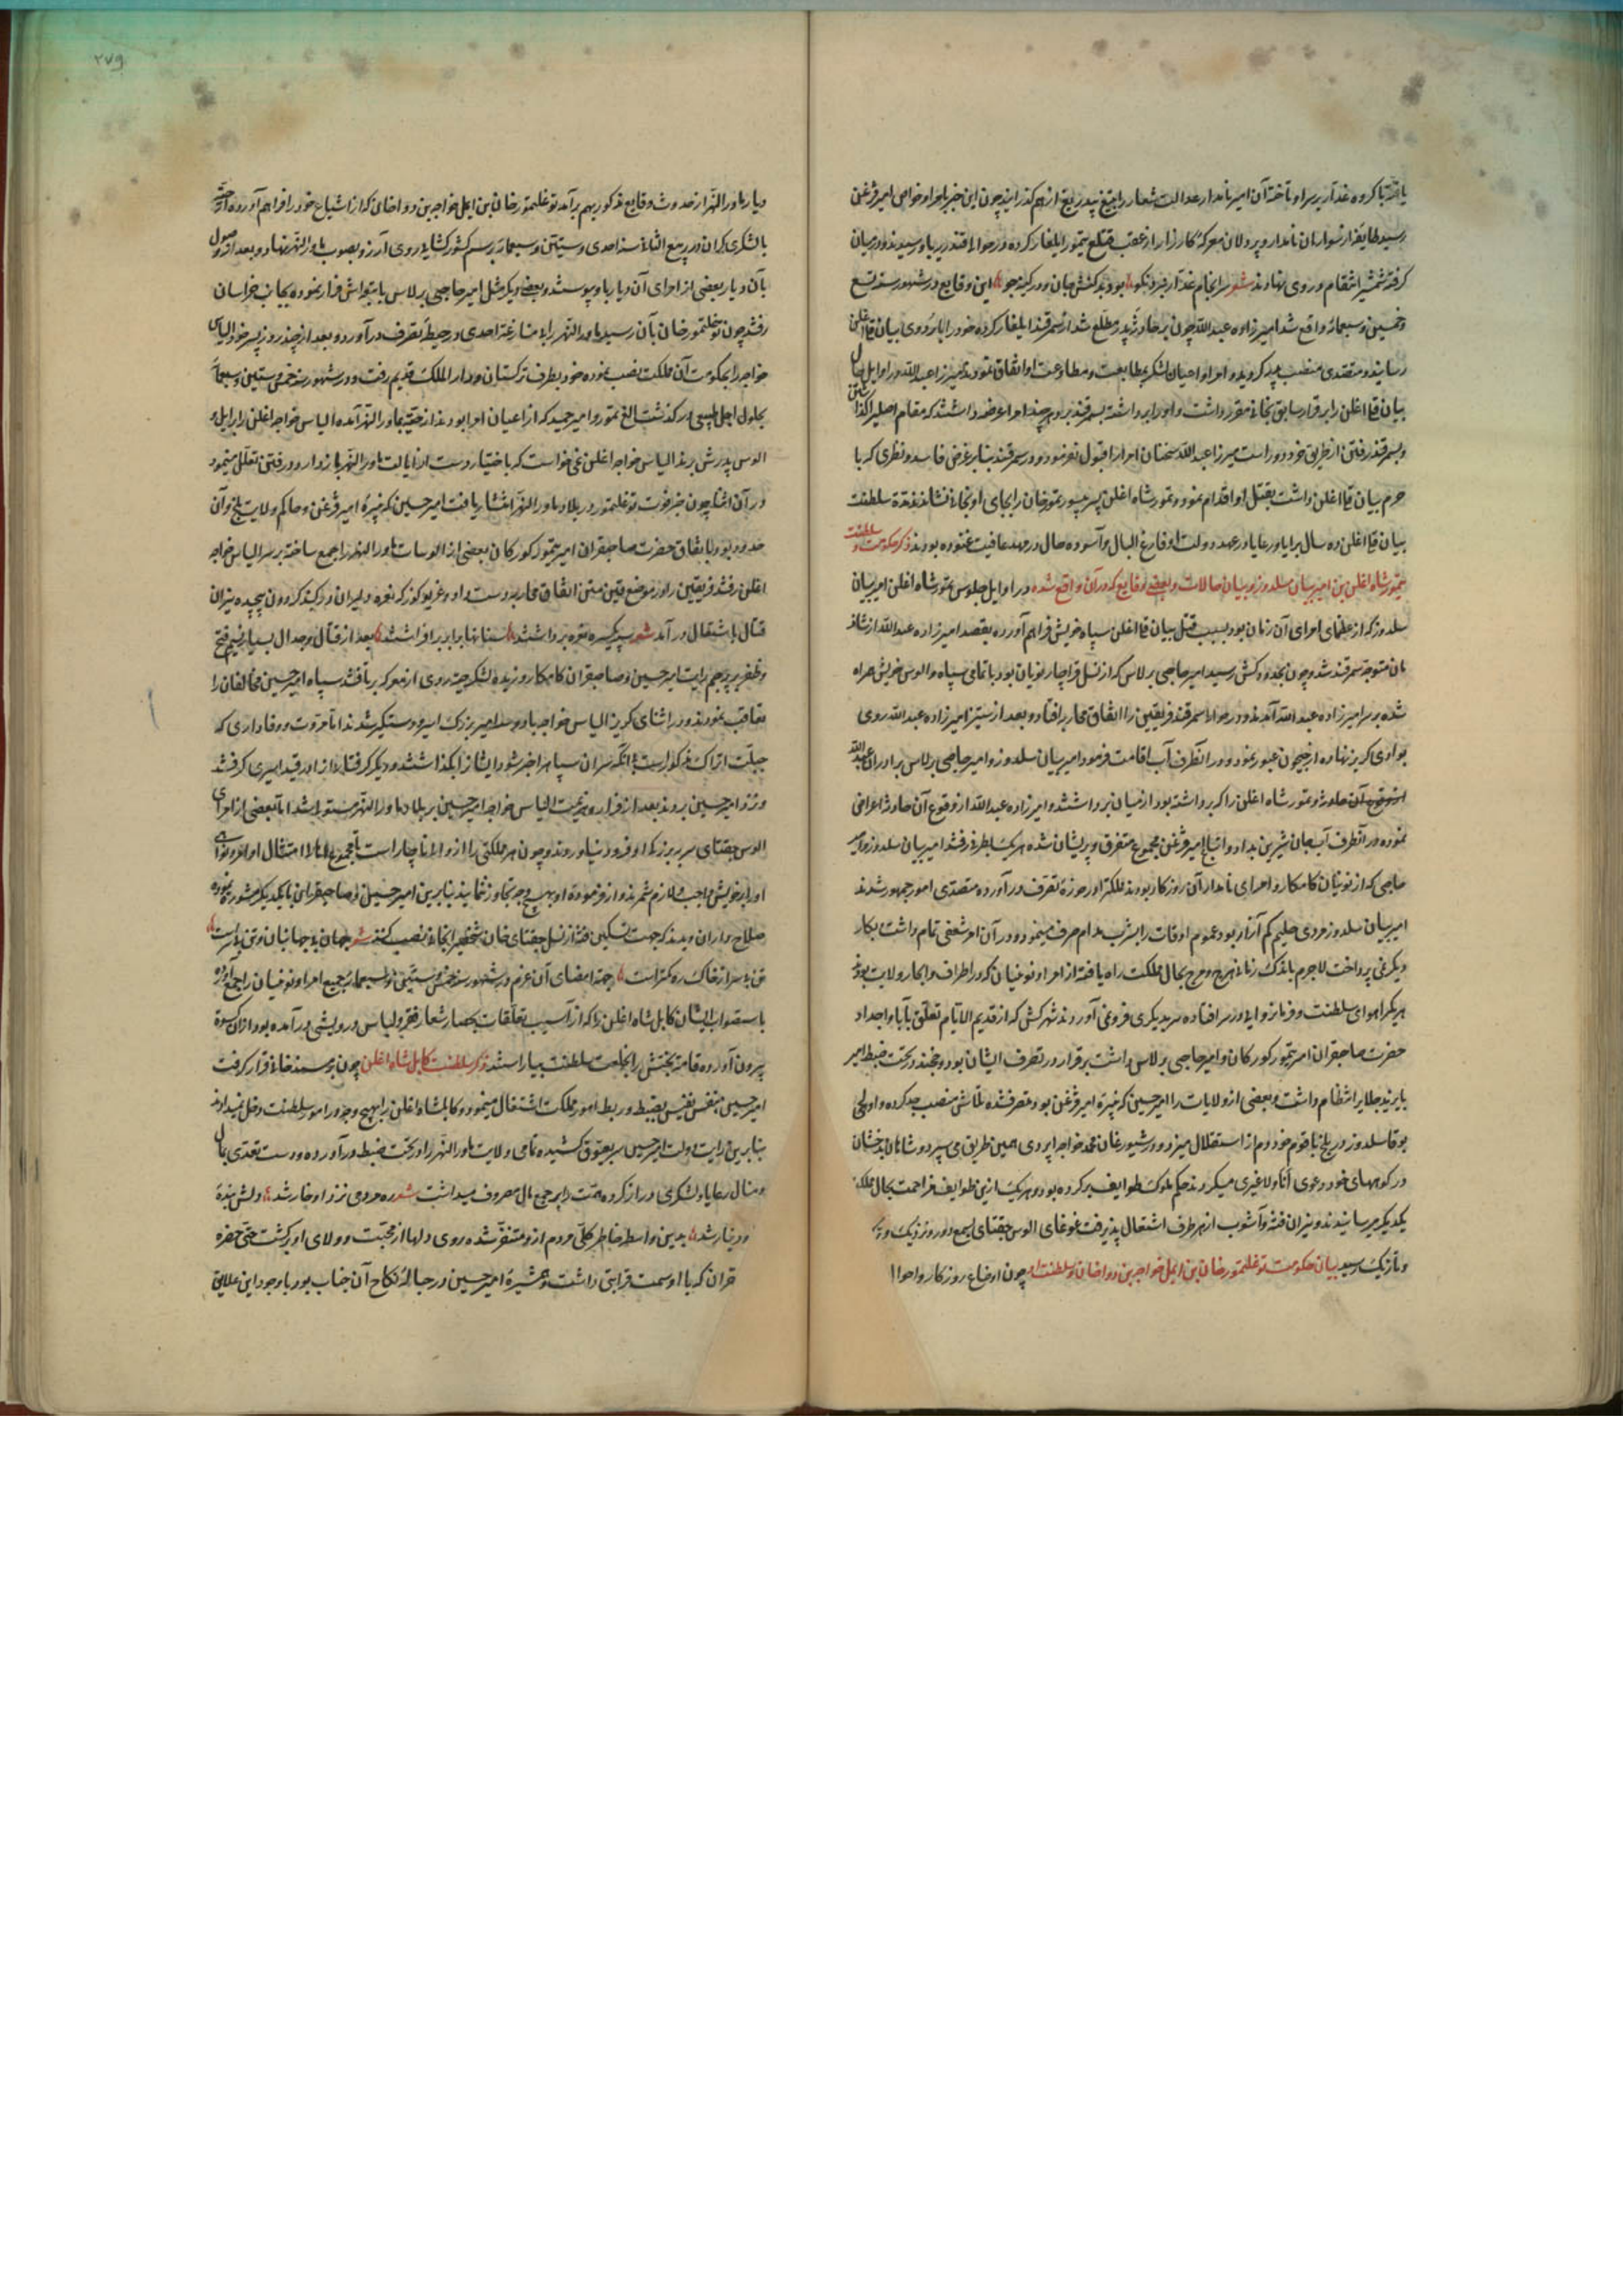 یافته با کروه غدار بر سر او تاخته آن امیر نامدار عدالت شعار را بتیغ بیدریغ از هم کذرانید چون این خبر بامرا و خواص امیر قزغن
رسید طایفه از سواران نامدار و پردلان معرکه کارزار از عقب قتلغ تیمور ایلغار کرده در حوالی قندز بدو رسیدند و در میان
کرفته شمشیر انتقام در وی نهادند شعر سرانجام غدار بود این وقایع در شهور سنه تسع
و خمسین و سبعمائه واقع شد امیرزاده عبدالله چون بر حادثه پدر مطلع شد از سمرقند ایلغار کرده خود را باردوی بیان قلی اغلن
رسانید و متصدی منصب پدر کردید و امرا و اعیان لشکر بمطابعت و مطاوعت او اتفاق نمودند میرزا عبدالله در اوایل حال
بیان قلی اغلن را بر قرار سابق بخانی مقرر داشت و او را برداشته بسمرقند برد هر چند امرا عرضه داشتند که مقام اصلی را کذاشتن
و بسمرقند رفتن از طریق خرد دور است میرزا عبدالله سخنان امرا را قبول نفرمود و در سمرقند بنا بر غرض فاسد و نظری که با
حرم بیان قلی اغلن داشت بقتل او اقدام نمود و تیمور شاه اغلن پسر یسور تیمور خان را بجای او بخانی نشاند مدة سلطنت
بیان قلی اغلن ده سال برایا و رعایا در عهد دولت او فارغ البال و آسوده حال در مهد عافیت غنوده بودند ذکر حکومت و سلطنت
تیمور شاه اغلن بن امیر بیان سلدوز و بیان حالات و بعضی وقایع که در آن واقع شده در اوایل جلوس تیمور شاه اغلن امیر بیان
سلدوز که از عظمای امرای آن زمان بود بسبب قتل بیان قلی اغلن سپاه خویش فراهم آورده بقصد امیرزاده عبدالله از
متوجه سمرقند شد و چون بحدود کش رسید امیر حاجی برلاس که از نسل قراچار نویان بود با تمامی سپاه و الوس خویش همراه
شده بر سر امیرزاده عبدالله آمدند و در حوالی سمرقند فریقین را اتفاق محاربه افتاد و بعد از ستیز امیرزاده عبدالله روی
بوادی کریز نهاده از جیحون عبور نمود و در آنطرف آب اقامت فرمود امیر بیان سلدوز و امیر حاجی برلاس برادران عبدالله
آن حادثه و تیمور شاه اغلن را که برداشته بود از میان برداشتند و امیرزاده عبدالله از وقوع آن حادثه اعراض
نموده در آنطرف آب جان شیرین بداد و اتباع امیر قزغن مجموع متفرق و پریشان شده هر یک بطرفی رفتند امیر بیان سلدوز و امیر
حاجی که از نوئینان کامکار و امرای نامدار آن روزکار بودند مملکت را در حوزه تصرف درآورده متصدی امور جمهور شدند
امیر بیان سلدوز مردی حلیم کم آزار بود و عموم اوقات را بشرب مدام صرف مینمود و در آن امر شعفی تمام داشت بکار
دیکر نمی پرداخت لاجرم باندک زمانی هرج و مرج بحال مملکت راه یافته از امرا و نوئینان که در اطراف و اکناف ولایت بودند
هر یک را هوای سلطنت و فرمانروایی در سر افتاده سر بدیکری فرو نمی آوردند شهر کش که از قدیم الایام تعلق بآبا و اجداد
حضرت صاحبقران امیر تیمور کورکان و امیر حاجی برلاس داشت بر قرار در تصرف ایشان بود و خجند در تحت ضبط امیر
بایزید جلایر انتظام داشت و بعضی از ولایات را امیر حسین که نبیره امیر قزغن بود متصرف شده تلاش منصب جد کرده و اولجی
بوقا سلدوز در بلخ با قوم خود دم از استقلال میزد و در شبورغان محمد خواجه اپردی همین طریق می سپرد و شاهان بدخشان
در کوههای خود دعوی انا و لا غیری میکردند حکم ملوک طوایف پیدا کرده بود و هر یک ازین طوایف مزاحمت بحال مملکت
یکدیکر میرسانیدند و نیران فتنه و آشوب از هر طرف اشتعال پذیرفت غوغای الوس جغتای بسمع دور و نزدیک و ترک
و تاجیک رسید بیان حکومت توغلتمور خان بن ایمل خواجه بن دوا خان و سلطنت او چون اوضاع روزکار و احوال
۲۷۹
دیار ماوراءالنهر از حدوث وقایع مذکور بهم برآمد توغلتمور خان بن ایمل خواجه بن دوا خان که از اشیاع خود را فراهم آورده
با لشکری کران در ربیع الثانی سنه احدی و ستین و سبعمائه برسم کشورکشایی روی آرزو بصوب ماوراءالنهر نهاد و بعد از وصول
بآن دیار بعضی از امرای آن دیار باو پیوستند و بعضی دیکر مثل امیر حاجی برلاس با تواش فرار نموده بجانب خراسان
رفتند چون توغلتمور خان بآن رسید ماوراءالنهر را بی منازعت احدی در حیطه تصرف درآورد و بعد از چند روز پسر خود الیاس
خواجه را بحکومت آن مملکت نصب نموده خود بطرف ترکستان و دار الملک قدیم رفت و در شهور سنه خمس و ستین و سبعمائه
بحلول اجل طبیعی در کذشت الغ تیمور و امیر حمید که از اعیان امرا بودند از جته بماوراءالنهر آمده الیاس خواجه اغلن را برای
الوس پدرش بردند الیاس خواجه اغلن نمی خواست که باختیار دست از ایالت ماوراءالنهر باز دارد و در رفتن تعلل مینمود
در آن اثنا چون خبر فوت توغلتمور در بلاد ماوراءالنهر انتشار یافت امیر حسین که نبیره امیر قزغن و حاکم ولایت بلخ و آن
حدود بود باتفاق حضرت صاحبقران امیر تیمور کورکان بعضی از الوسات ماوراءالنهر را جمع ساخته بر سر الیاس خواجه
اغلن رفتند فریقین را در موضع قبی متن اتفاق محاربه دست داد و غریو کوس و نعره دلیران در کنبد کردون پیچیده نیران
قتال باشتعال درآمد شعر سپر یکسره بر داشتند سنانها بابر برافراشتند بعد از قتال و جدال بسیار نسیم فتح
و ظفر بر پرچم رایت امیر حسین و صاحبقران کامکار وزیده لشکر جته روی از معرکه برتافتند سپاه امیر حسین مخالفان را
تعاقب نمودند و در اثنای کریز الیاس خواجه با دو سه امیر بزرک اسیر و دستکیر شدند اما مروت و وفاداری که
جبلت اتراک مذکور است تا آنکه سران سپاه را خبر شود ایشان را بکذاشتند و دیکر کرفتاران را در قید اسیری کرفتند
و نزد امیر حسین بردند بعد از فرار و هزیمت الیاس خواجه امیر حسین بر بلاد ماوراءالنهر مستولی شد اما بعضی از امرای
الوس جغتای سر بزرکی او فرود نیاوردند و چون هر مملکتی را از والی ناچار است تا مجموع اهالی امتثال اوامر و نواهی
او را بر خویش واجب و لازم شمرند و از فرموده او بهیچ وجه تجاوز ننمایند بنابرین امیر حسین و صاحبقران با یکدیکر مشورت نموده
صلاح در آن دیدند که جهت تسکین فتنه از نسل جغتای خان شخصی را بخانی نصب کنند شعر جهان و جهانبان و تن است
تن بی سر از خاک ره کمتر است جهة امضای آن عزم در شهور سنه خمس و ستین و سبعمائه جمیع امرا و نوئینان را جمع آورده
باستصواب ایشان کابل شاه اغلن را که از آسیب تعلقات بحصار شعار فقر و لباس درویشی درآمده بود از آن کسوة
بیرون آورده قامت بختش را بخلعت سلطنت بیاراستند ذکر سلطنت کابل شاه اغلن چون بر مسند خانی قرار کرفت
امیر حسین بنفس نفیس بضبط و ربط امور مملکت اشتغال مینمود و کابلشاه اغلن را بهیچ وجه در امور سلطنت دخل نمیداد
بنابرین رایت دولت امیر حسین سر بعیوق کشیده تمامی ولایت ماوراءالنهر را در تحت ضبط درآورده و دست تعدی بمال
و منال رعایا و لشکری دراز کرده همت را بر جمع مال مصروف میداشت شعر مردمی نزد او خار شد دلش بنده
دینار شد بدین واسطه خاطر کلی مردم ازو متنفر شده روی دلها از محبت و ولای او برکشت حتی حضرة
قران که با او سمت قرابتی داشت و همشیره امیر حسین در حباله نکاح آن جناب بود با وجود این علایق